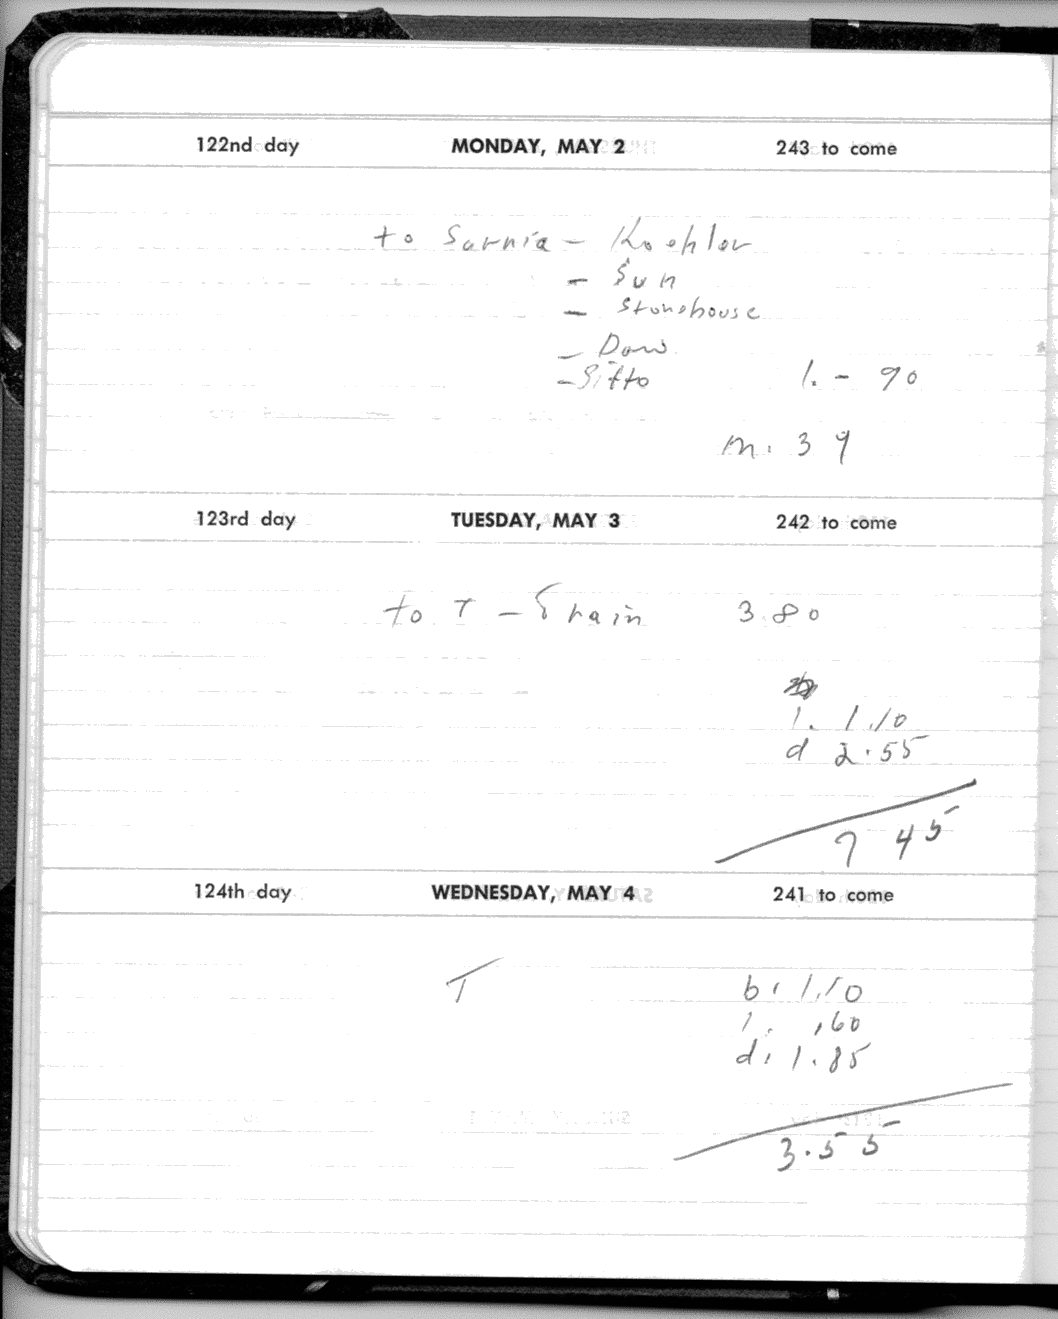 122nd day MONDAY, MAY 2 243 to come
to Sarnia - Koehler
- Sun
- Stonehouse
- Dow
- Sitto l. - 90
m. 39
123rd day TUESDAY, MAY 3 242 to come
to T - Train 3.80
l. 1.10
d 2.55
7 45
124th day WEDNESDAY, MAY 4 241 to come
T b. 1.10
l. .60
d. 1.85
3.55